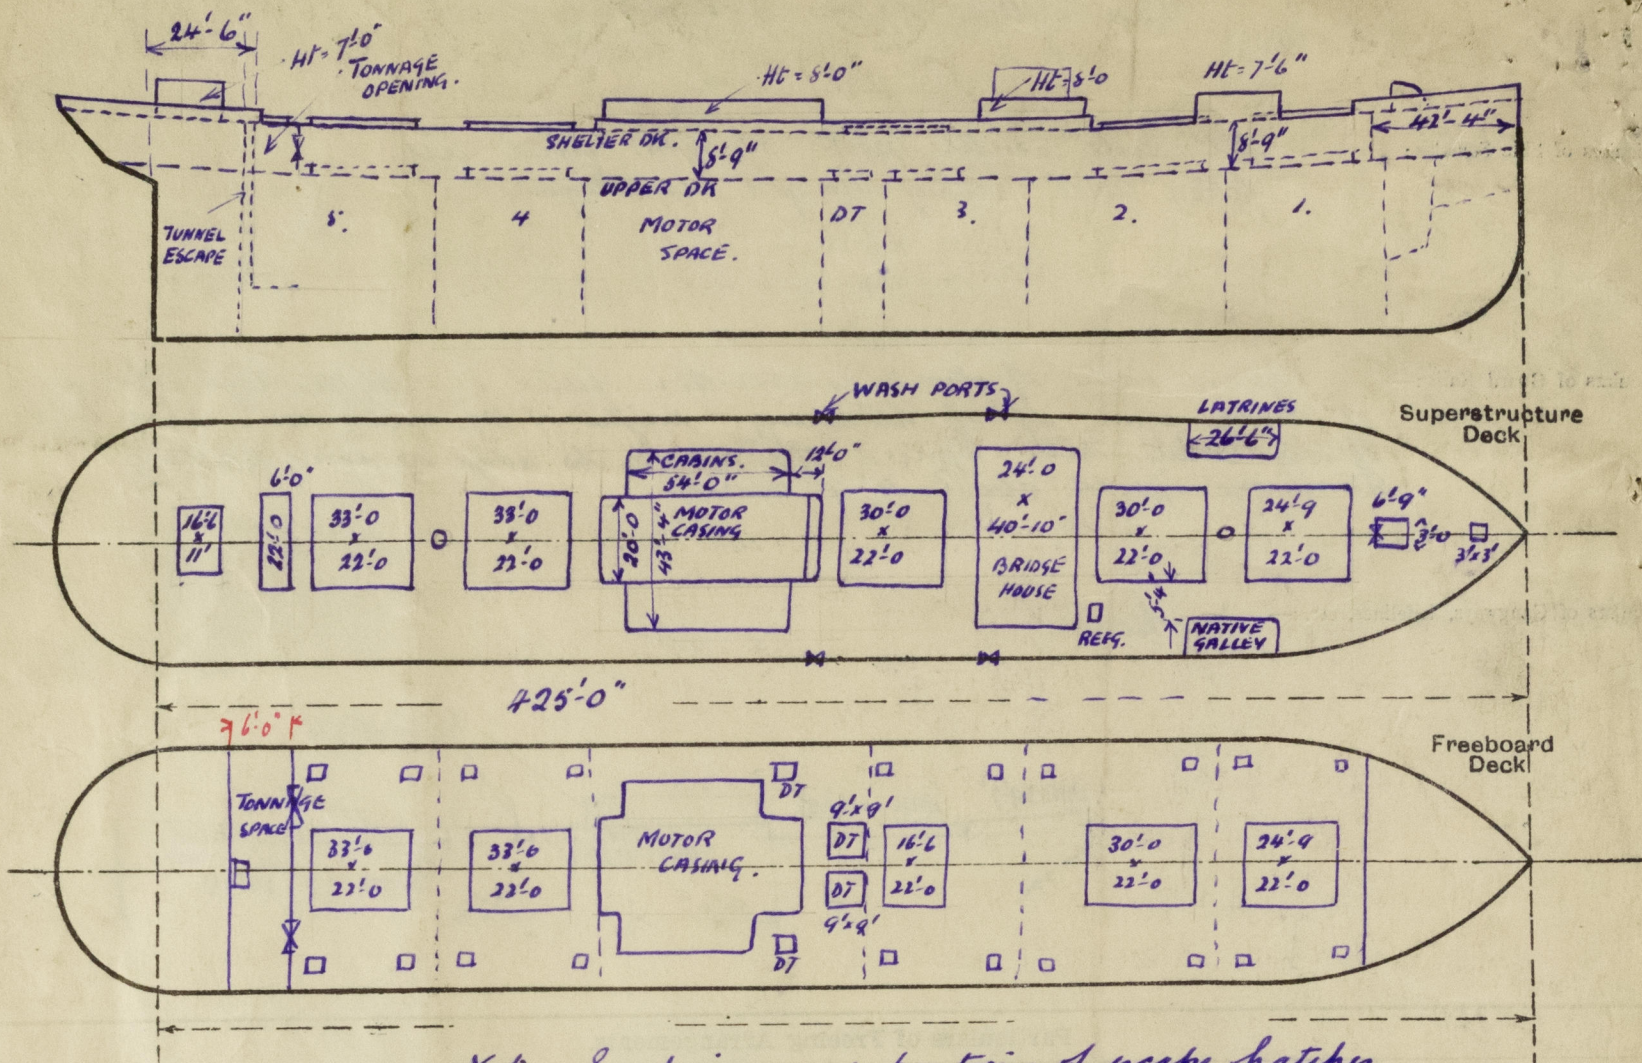 24'-6"
Ht = 7'-0"
TONNAGE
OPENING.
Ht = 8'-0"
Ht = 8'-0
Ht = 7'-6"
42'-4"
SHELTER DK.
8'-9"
8'-9"
UPPER DK
5.
4
MOTOR
SPACE.
DT
3.
2.
1.
TUNNEL
ESCAPE
WASH PORTS
LATRINES
26'-6"
Superstructure
Deck
6'-0"
16'-6
x
11'
22'-0
33'-0
x
22'-0
33'-0
x
22'-0
CABINS.
54'-0"
12'-0"
20'-0
43'-4"
MOTOR
CASING
30'-0
x
22'-0
24'-0
x
40'-10"
BRIDGE
HOUSE
REFG.
30'-0
x
22'-0
24'-9
x
22'-0
6'-9"
3'-0
3'x3'
NATIVE
GALLEY
425'-0"
6'-0"
Freeboard
Deck
TONNAGE
SPACE
33'-6
x
22'-0
33'-6
x
22'-0
MOTOR
CASING.
DT
DT
9'x9'
DT
DT
9'x9'
16'-6
x
22'-0
30'-0
x
22'-0
24'-9
x
22'-0
of escape hatches